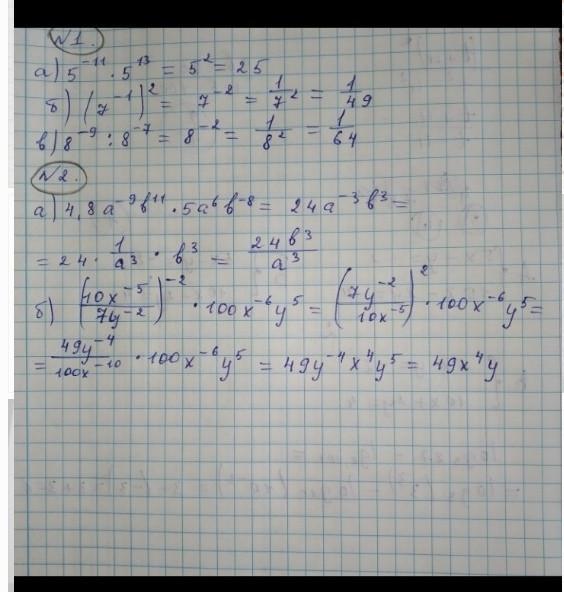 №1.
а) 5⁻¹¹ · 5¹³ = 5² = 25
б) (7⁻¹)² = 7⁻² = 1/7² = 1/49
в) 8⁻⁹ : 8⁻⁷ = 8⁻² = 1/8² = 1/64
№2.
а) 4,8a⁻⁹b¹¹ · 5a⁶b⁻⁸ = 24a⁻³b³ =
= 24 · 1/a³ · b³ = 24b³/a³
б) (10x⁻⁵/7y⁻²)⁻² · 100x⁻⁶y⁵ = (7y⁻²/10x⁻⁵)² · 100x⁻⁶y⁵ =
= 49y⁻⁴/100x⁻¹⁰ · 100x⁻⁶y⁵ = 49y⁻⁴x⁴y⁵ = 49x⁴y